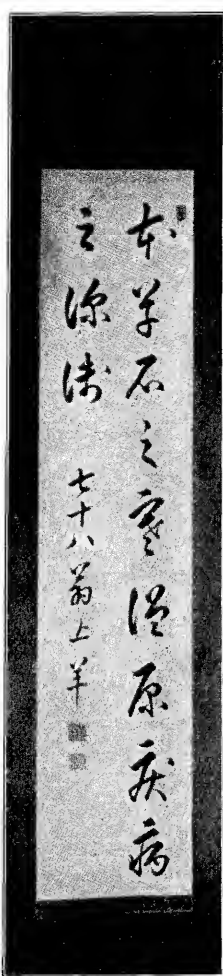 本草石之寒温原疾病
之深淺 七十八翁上羊